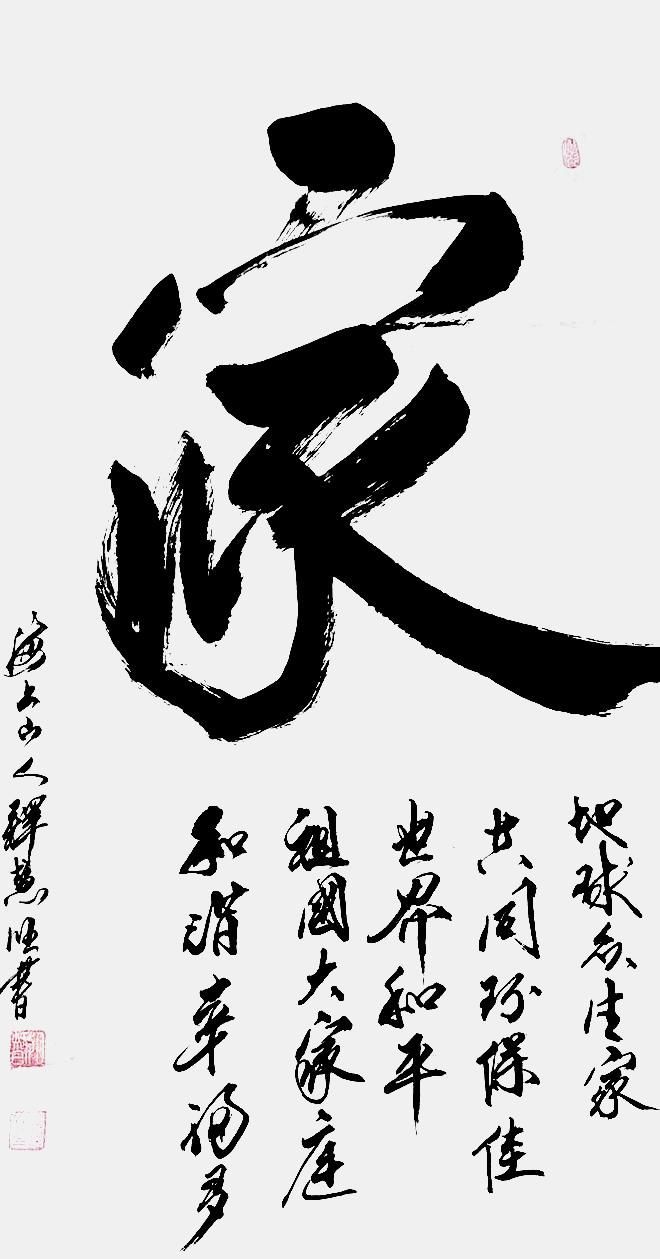 家
地球众生家
共同珍保佳
世界和平
祖國大家庭
和谐幸福多
海上山人釋慧旺書